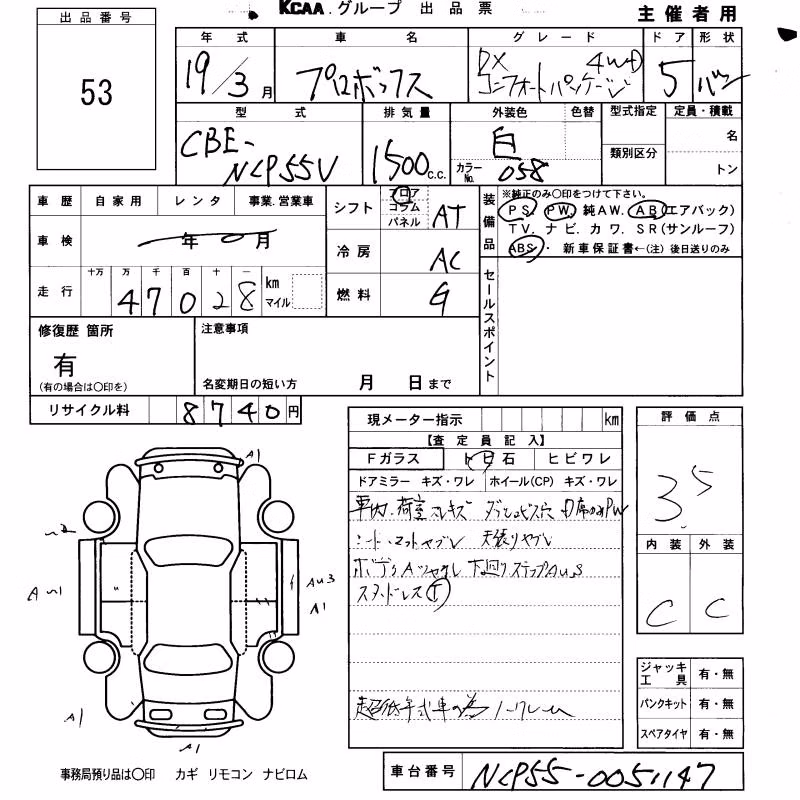 KCAA.グループ 出品票
主催者用
出品番号
53
年式 車名 グレード ドア 形状
19/3月 プロボックス DX 4WD コンフォートパッケージ 5 バン
型式 排気量 外装色 色替 型式指定 定員・積載
CBE-NCP55V 1500c.c. 白 カラーNo. 058 類別区分 名 トン
車歴 自家用 レンタ 事業.営業車
シフト フロア コラム パネル AT
装備品
※純正のみ〇印をつけて下さい。
PS. PW. 純AW. AB(エアバック)
TV. ナビ. カワ. SR(サンルーフ)
ABS・ 新車保証書←(注) 後日送りのみ
車検 年 0月
冷房 AC
走行 十万 万 千 百 十 一 km マイル
47028
燃料 G
セールスポイント
修復歴 箇所 注意事項
有
(有の場合は〇印を) 名変期日の短い方 月 日まで
リサイクル料 8740円
現メーター指示 km
評価点
3.5
【査定員記入】
Fガラス トビ石 ヒビワレ
ドアミラー キズ・ワレ ホイール(CP) キズ・ワレ
車内.荷室スレキズ ダッシュビス穴
シート・マットヤブレ 天張りヤブレ
ボデーAツヤナシ 下廻りステップAUS
スタッドレスT
超低年式車の為ノークレーム
内装 外装
C C
A1
A1
A1
A1
ジャッキ 工具 有・無
パンクキット 有・無
スペアタイヤ 有・無
事務局預り品は〇印 カギ リモコン ナビロム
車台番号 NCP55-0051147